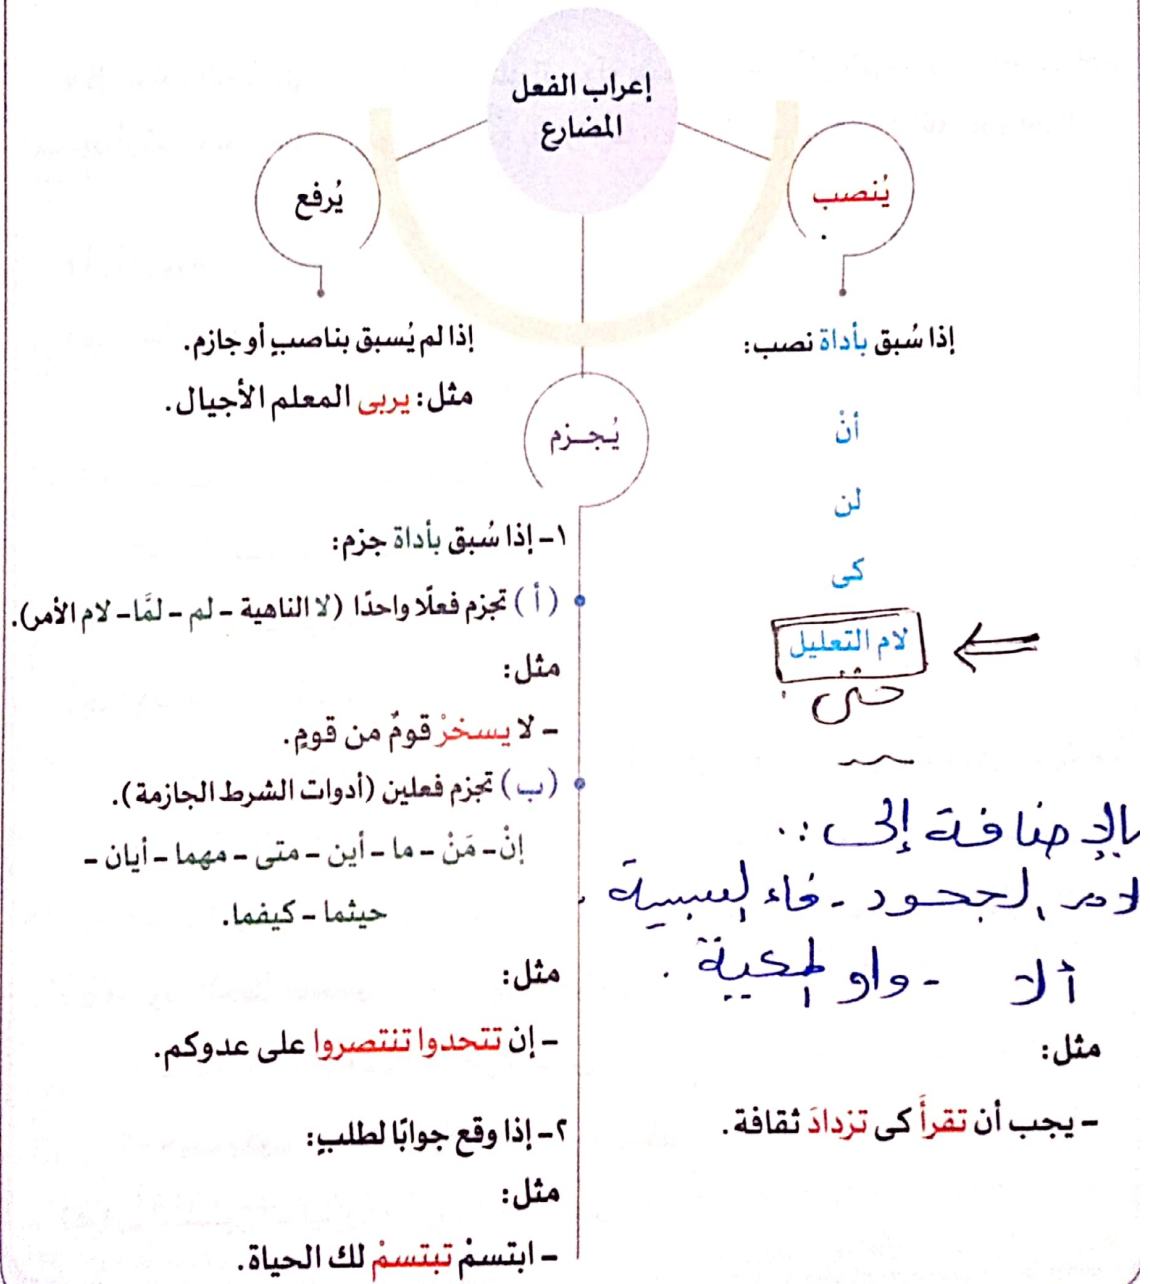 إعراب الفعل
المضارع
يُنصب
إذا سُبق بأداة نصب:
أنْ
لن
كى
لام التعليل
حتى
بالإضافة إلى:
لام الجحود - فاء السببية
ألا - واو المعية.
مثل:
- يجب أن تقرأَ كى تزدادَ ثقافة.
يُرفع
إذا لم يُسبق بناصبٍ أو جازم.
مثل: يربى المعلم الأجيال.
يُجـزم
١- إذا سُبق بأداة جزم:
(أ) تجزم فعلًا واحدًا (لا الناهية - لم - لمَّا - لام الأمر).
مثل:
- لا يسخرْ قومٌ من قومٍ.
(ب) تجزم فعلين (أدوات الشرط الجازمة).
إنْ - مَنْ - ما - أين - متى - مهما - أيان -
حيثما - كيفما.
مثل:
- إن تتحدوا تنتصروا على عدوكم.
٢- إذا وقع جوابًا لطلبٍ:
مثل:
- ابتسمْ تبتسمْ لك الحياة.